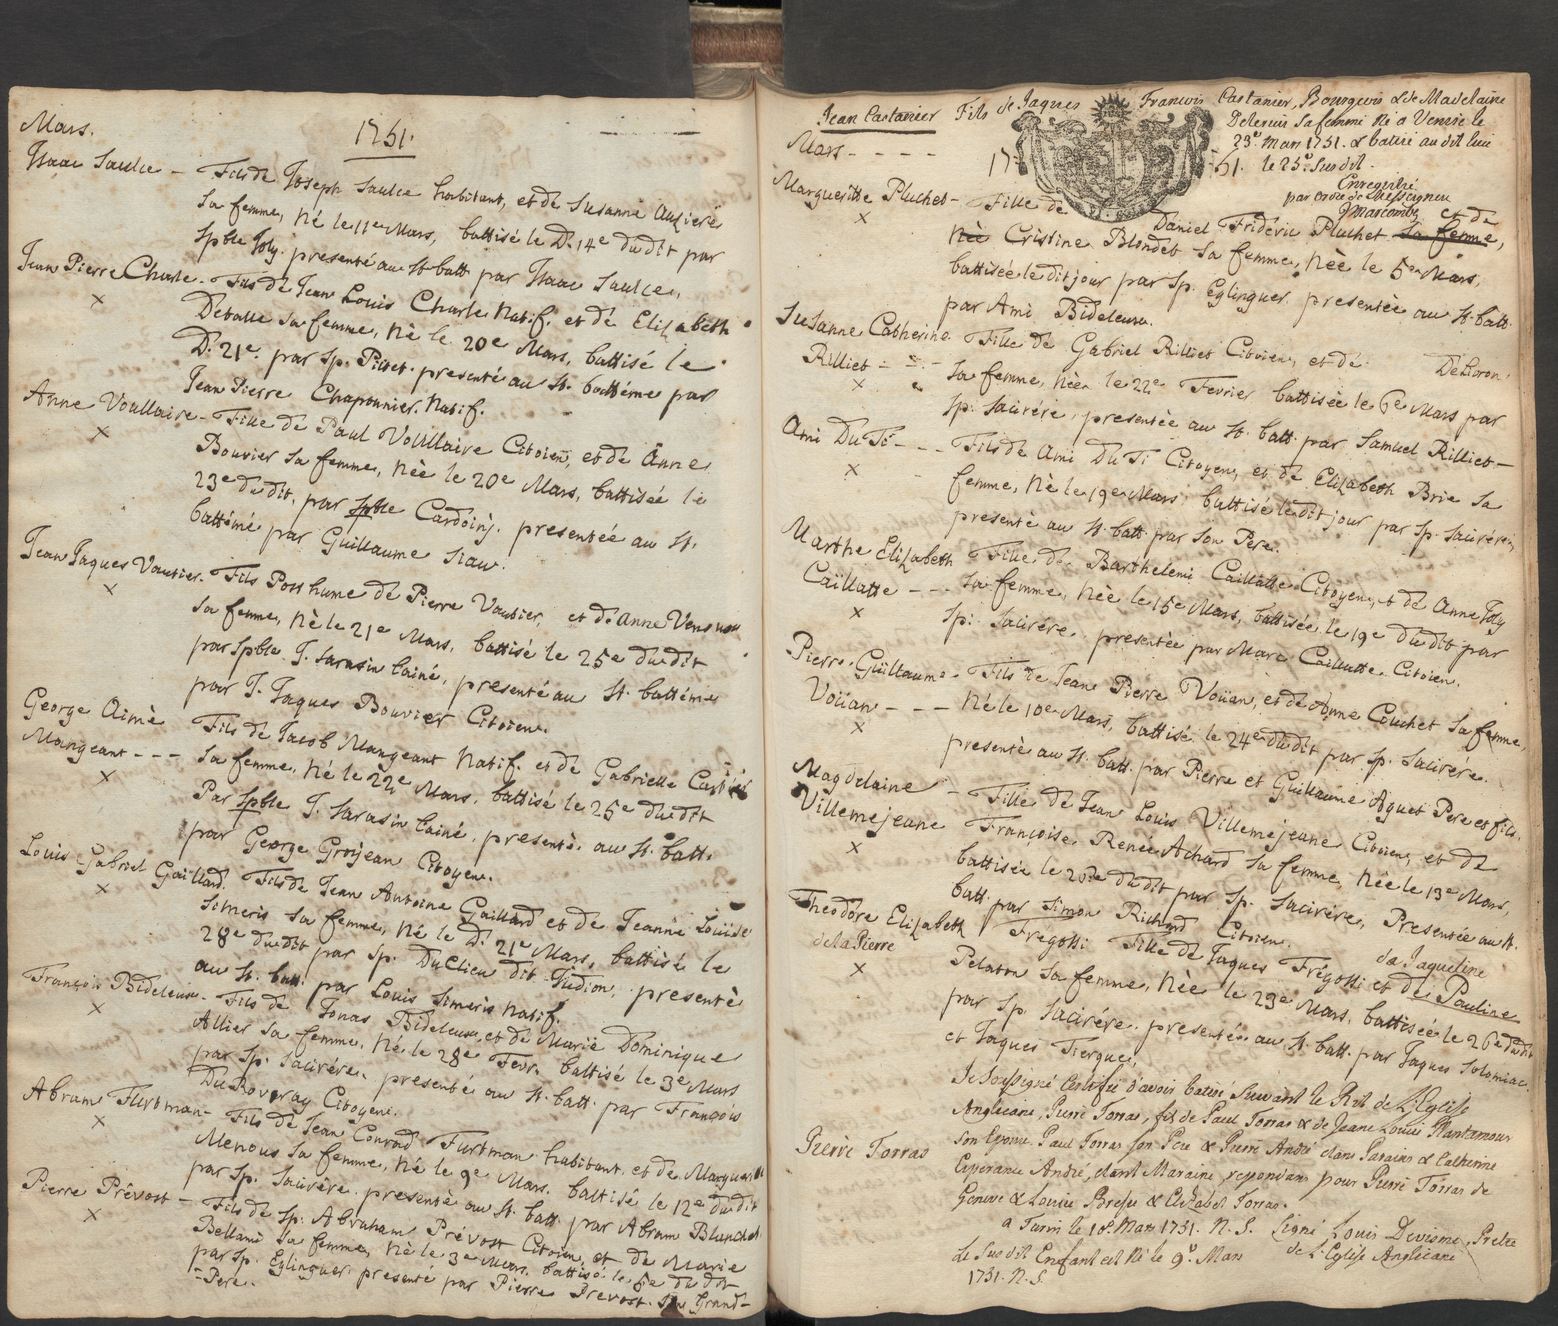 Mars.
1751.
Isaac Saulce - Fils de Joseph Saulce habitant, et de Susanne Auzieré
sa femme, né le 11e Mars, battisé le D. 14e du dit par
Spble Joly. presenté au St. batt par Isaac Saulce,
Jean Pierre Charle. Fils de Jean Louis Charle Natif. et de Elizabeth
× Debatte sa femme, né le 20e Mars, battisé le
D. 21e. par Sp. Pittet. presenté au St. battéme par
Jean Pierre Chaponnier. Natif.
Anne Voullaire - Fille de Paul Voullaire Citoien, et de Anne
× Bouvier sa femme, née le 20e Mars, battisée le
23e du dit, par Spble Cardoinj. presentée au St.
battémé par Guillaume Siau.
Jean Jaques Vautier. Fils Posthume de Pierre Vautier, et de Anne
× sa femme, né le 21e Mars, battisé le 25e du dit
par Spble J. Sarasin lainé, presenté au St. battéme
par J. Jaques Bouvier Citoien.
George Aimè Fils de Jacob Mangeant Natif. et de Gabrielle
Mangeant - - - sa femme, né le 22e Mars, battisé le 25e du dit
× Par Spble J. Sarasin lainé, presenté. au St. batt.
par George Grosjean Citoyen.
Louis Gabriel Gaillard. Fils de Jean Antoine Gaillard et de Jeanne Louise
× Simeris sa femme, né le D. 21e Mars, battisé le
28e du dit par Sp. DuClieu dit Judion, presenté
au St. batt. par Louis Simeris Natif.
François Bideleux - Fils de Jonas Bideleux et de Marie Dominique
× Allier sa femme, né le 28e Fevr. battisé le 3e Mars
par Sp. Sacirére. presenté au St. batt. par François
DuRoveray Citoyen.
Abram Furtman - Fils de Jean Conrad Furtman habitant, et de
× Menous sa femme, né le 9e Mars. battisé le 12e du dit
par Sp. Sacirére. presenté au St. batt. par Abram Blanchet
Pierre Prévost - Fils de Sp. Abraham Prévost Citoien, et de Marie
× Bellami sa femme, né le 3e Mars. battisé le 5e du dit
par Sp. Eglinguer. presenté par Pierre Prevost. son Grand-
- Pere.
Jean Castanier Fils de Jaques François Castanier, Bourgeois & de Madelaine
Delercis sa femme né a Venise le
23e. Mars 1751. & batisé au dit lieu
Mars - - - - 17 51. le 25e. Susdit.
Enregistré
par ordre de Messeigneu
J Marcombz
Margueritte Pluchet - Fille de Daniel Frideric Pluchet sa femme, et de
× née Cristine Blondet sa femme, née le 5e Mars,
battisée le dit jour par Sp. Eglinguer. presentée au St. batt.
par Ami Bideleux.
Susanne Catherine Fille de Gabriel Rilliet Citoien, et de DeLoron
Rilliet - - - sa femme, née le 22e Fevrier battisée le 6e Mars par
× Sp. Sacirére, presentée au St. batt. par Samuel Rilliet -
Ami DuTi - - - Fils de Ami DuTi Citoyen, et de Elizabeth Brie sa
× femme, né le 19e Mars, battisé le dit jour par Sp. Sacirére,
presenté au St. batt. par son Pere.
Marthe Elizabeth Fille de Barthelemi Caillatte Citoyen, et de Anne Joly
Caillatte - - - sa femme, née le 15e Mars, battisée le 19e du dit par
× Sp. Sacirére. presentée par Marc Caillatte. Citoien.
Pierre Guillaume - Fils de Jean Pierre Voüan, et de Anne Couchet sa femme,
Voüan - - - Né le 10e Mars, battisé le 24e du dit par Sp. Sacirére.
× presenté au St. batt. par Pierre et Guillaume Aguet Pere et fils.
Magdelaine - Fille de Jean Louis Villemejeane Citoien, et de
Villemejeane Françoise Renée Achard sa femme, née le 13e Mars,
× battisée le du dit par Sp. Sacirére, Presentée au St.
batt. par Simon Richard Citoien.
Theodore Elizabeth Fregossi Fille de Jaques Fregossi et de Pauline
de la Pierre da Jaqueline
× Pelaton sa femme, née le 23e Mars, battisée le 26e du dit
par Sp. Sacirére. presentée au St. batt. par Jaques Solomiac.
et Jaques Fierque.
Je Soussigné Certifie d'avoir batisé, Suivant le Rit de L'Eglise
Anglicane, Pierre Torras, fils de Paul Torras & de Jeane Louise Plantamour
Pierre Torras son Epouse. Paul Torras son Pere & Pierre André etans Parains & Catherine
Esperance André, etant Maraine, repondans pour Pierre Torras de
Geneve & Louise Bresse & Elizabet Torras.
a Turin le 10e Mars 1751. N. S. Signé Louis Devisme, Pretre
le Susdit Enfant est né le 9e. Mars de L'Eglise Anglicane
1751. N. S.